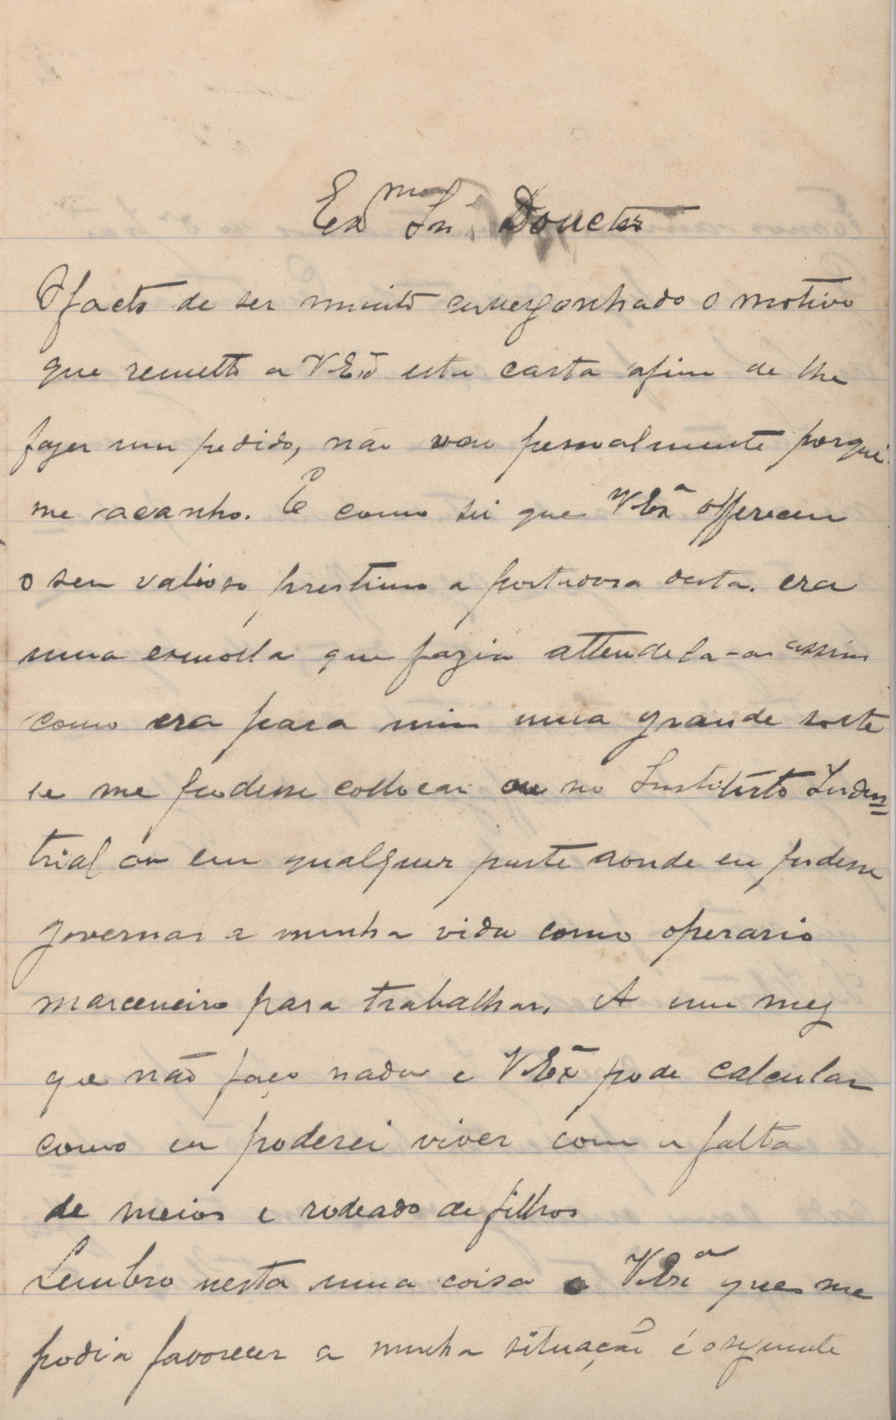 Exmo Snr. Douctor
O facto de ser muito envergonhado o motivo
que remetto a V Exª esta carta afim de lhe
fazer um pedido, não vou pessoalmente porque
me acanho. E como sei que V Exª offereceu
o seu valioso prestimo a portadora desta. era
uma esmolla que fazia attendela-a assim
como era para mim uma grande sorte
se me podesse collocar ou no Instituto Indus=
trial ou em qualquer parte aonde eu podesse
governar a minha vida como operario
marceneiro para trabalhar. A um mez
que não faço nada e V Exª pode calcular
como eu poderei viver com a falta
de meios e rodeado de filhos
Lembro nesta uma coisa a V Exª que me
podia favorecer a minha situação é o seguinte